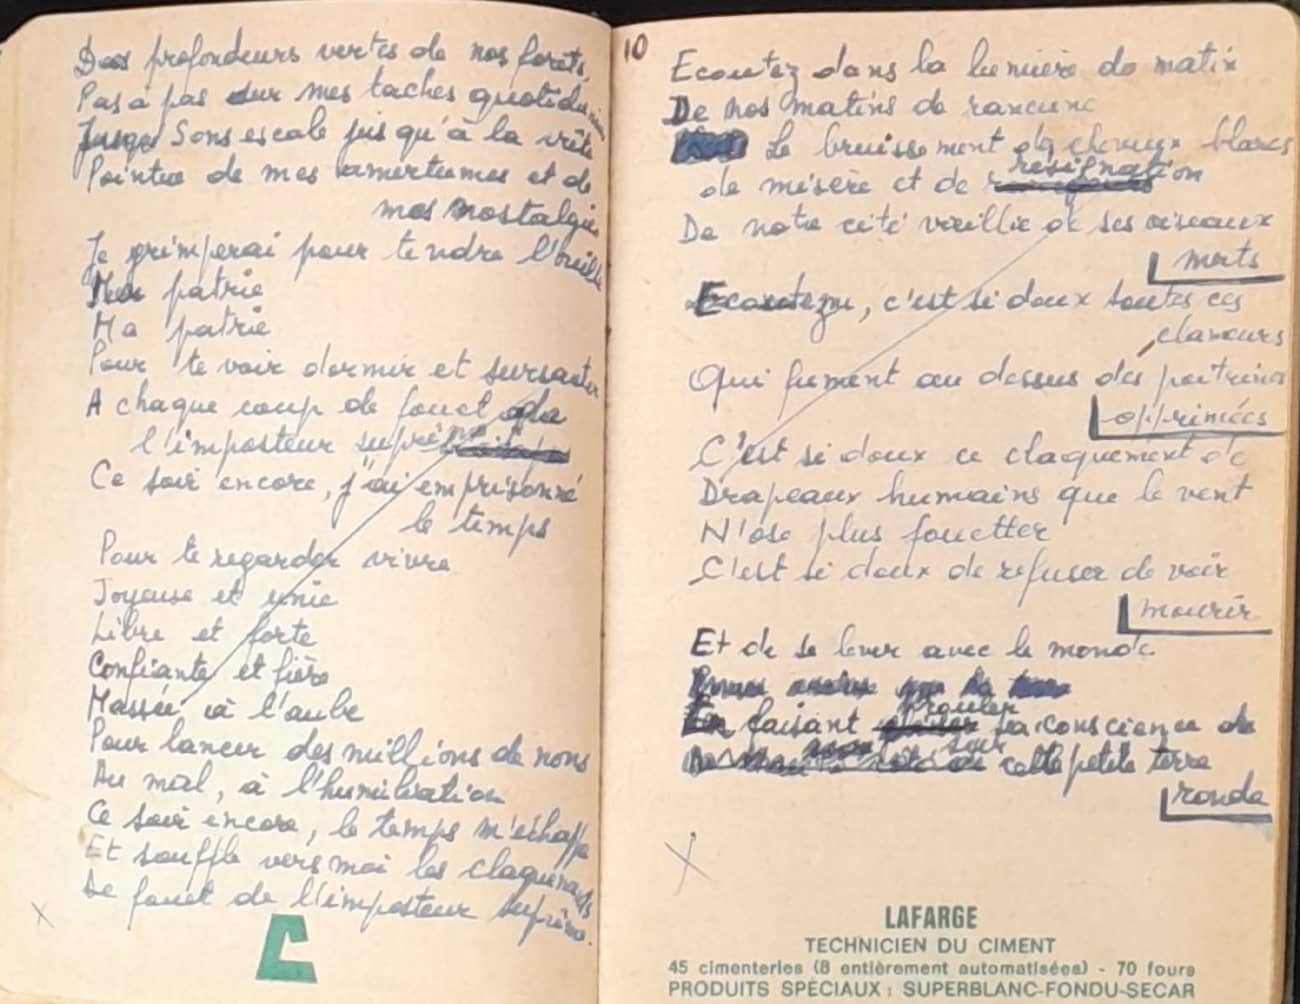 Des profondeurs vertes de nos forêts,
Pas à pas sur mes taches quotidiennes
Sans escale jusqu'à la
Pointue de mes amertumes et de
mes nostalgies
Je grimperai pour tendre l'oreille
Ma patrie
Ma patrie
Pour te voir dormir et sursauter
A chaque coup de fouet de
l'imposteur suprême
Ce soir encore, j'ai emprisonné
le temps
Pour te regarder vivre
Joyeuse et unie
Libre et forte
Confiante et fière
Massée à l'aube
Pour lancer des millions de nons
Au mal, à l'humiliation
Ce soir encore, le temps m'échappe
Et souffle vers moi les claquements
De fouet de l'imposteur suprême.
C
10
Ecoutez dans la lumière du matin
De nos matins de rancune
Le bruissement de cheveux blancs
de misère et de résignation
De notre cité vieillie et ses oiseaux
morts
Ecoutez, c'est si doux toutes ces
clameurs
Qui fument au dessus des poitrines
opprimées
C'est si doux ce claquement de
Drapeaux humains que le vent
N'ose plus fouetter
C'est si doux de refuser de voir
mourir
Et de se lever avec le monde
En faisant sa conscience de
sur cette petite terre
ronde
LAFARGE
TECHNICIEN DU CIMENT
45 cimenteries (8 entièrement automatisées) - 70 fours
PRODUITS SPÉCIAUX : SUPERBLANC-FONDU-SECAR